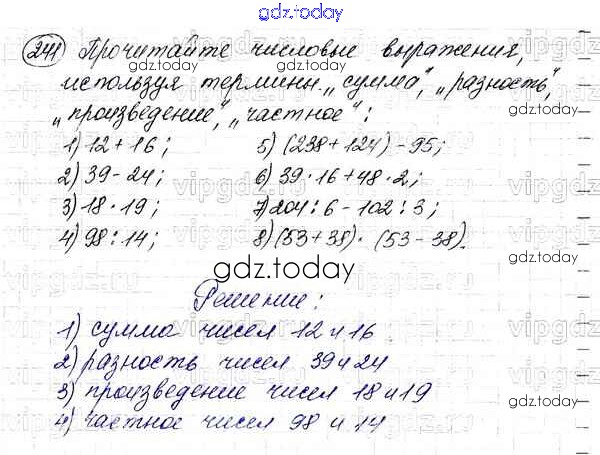 gdz.today
241 Прочитайте числовые выражения,
используя термины „сумма“, „разность“,
„произведение“, „частное“:
1) 12 + 16; 5) (238 + 124) - 95;
2) 39 - 24; 6) 39 · 16 + 48 · 2;
3) 18 · 19; 7) 204 : 6 - 102 : 3;
4) 98 : 14; 8) (53 + 38) · (53 - 38).
gdz.today
gdz.today
Решение:
1) сумма чисел 12 и 16
2) разность чисел 39 и 24
3) произведение чисел 18 и 19
gdz.today
4) частное чисел 98 и 14